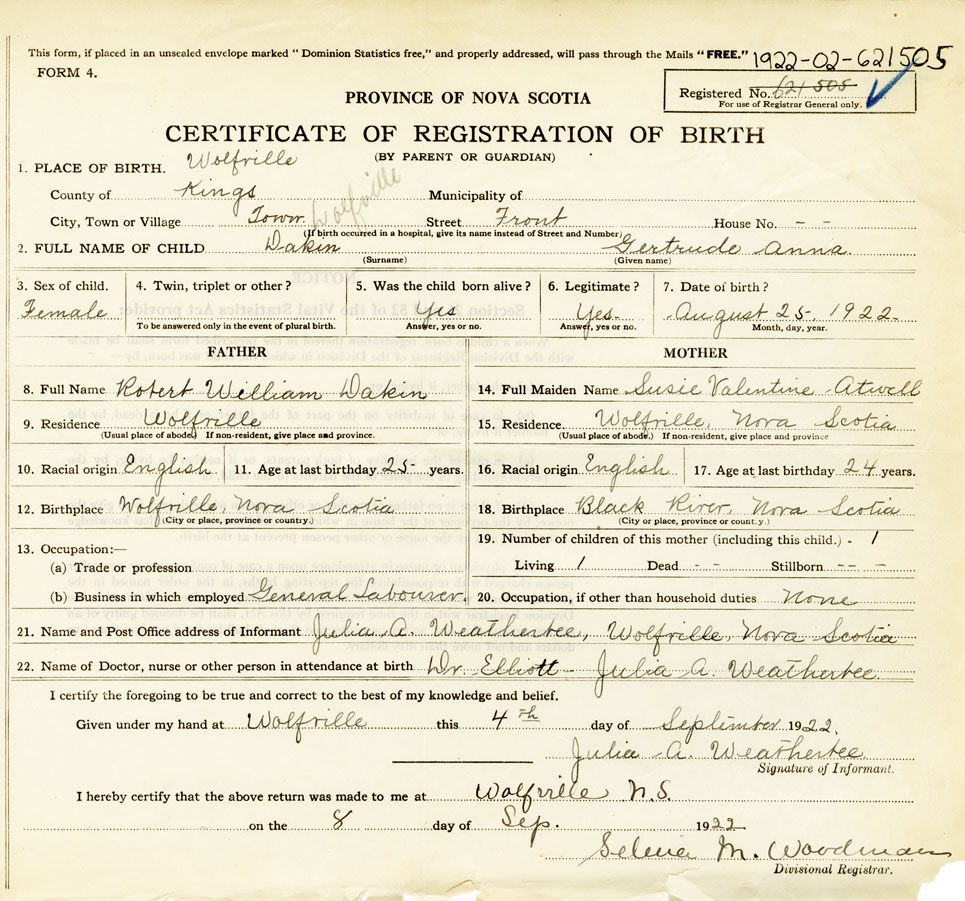 This form, if placed in an unsealed envelope marked "Dominion Statistics free," and properly addressed, will pass through the Mails "FREE." 1922-02-621505
FORM 4.
Registered No. 621505
For use of Registrar General only.
PROVINCE OF NOVA SCOTIA
CERTIFICATE OF REGISTRATION OF BIRTH
(BY PARENT OR GUARDIAN)
1. PLACE OF BIRTH. Wolfville
County of Kings Municipality of
City, Town or Village Town Wolfville Street Front House No. - -
(If birth occurred in a hospital, give its name instead of Street and Number)
2. FULL NAME OF CHILD Dakin Gertrude Anna.
(Surname) (Given name)
3. Sex of child. 4. Twin, triplet or other? 5. Was the child born alive? 6. Legitimate? 7. Date of birth?
Female Yes Yes- August 25, 1922
To be answered only in the event of plural birth. Answer, yes or no. Answer, yes or no. Month, day, year.
FATHER MOTHER
8. Full Name Robert William Dakin 14. Full Maiden Name Susie Valentine Atwell
9. Residence Wolfville 15. Residence. Wolfville, Nova Scotia
(Usual place of abode.) If non-resident, give place and province. (Usual place of abode.) If non-resident, give place and province
10. Racial origin English 11. Age at last birthday 25- years. 16. Racial origin English 17. Age at last birthday 24 years.
12. Birthplace Wolfville, Nova Scotia 18. Birthplace Black River, Nova Scotia
(City or place, province or country.) (City or place, province or country.)
13. Occupation:— 19. Number of children of this mother (including this child.) - 1
(a) Trade or profession Living 1 Dead - - Stillborn -- -
(b) Business in which employed General Labourer. 20. Occupation, if other than household duties None
21. Name and Post Office address of Informant Julia A. Weathertee, Wolfville, Nova Scotia
22. Name of Doctor, nurse or other person in attendance at birth Dr. Elliott - Julia A. Weathertee.
I certify the foregoing to be true and correct to the best of my knowledge and belief.
Given under my hand at Wolfville this 4th day of September 1922.
Julia A. Weathertee
Signature of Informant.
I hereby certify that the above return was made to me at Wolfville N.S.
on the 8 day of Sep. 1922
M. Woodman
Divisional Registrar.